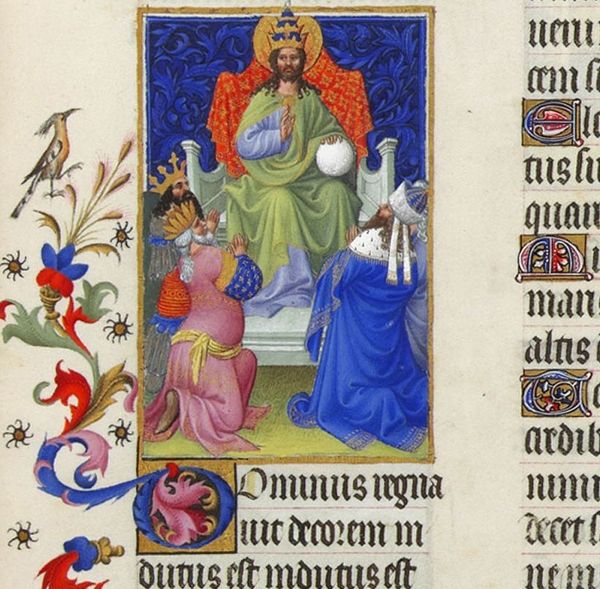 Dominus regna
uit decorem in
dutus est indutus est
ueru
cem s
Ele
tus su
quar
Mi
maris
altis d
Te
credib
nimi
decet s
nem